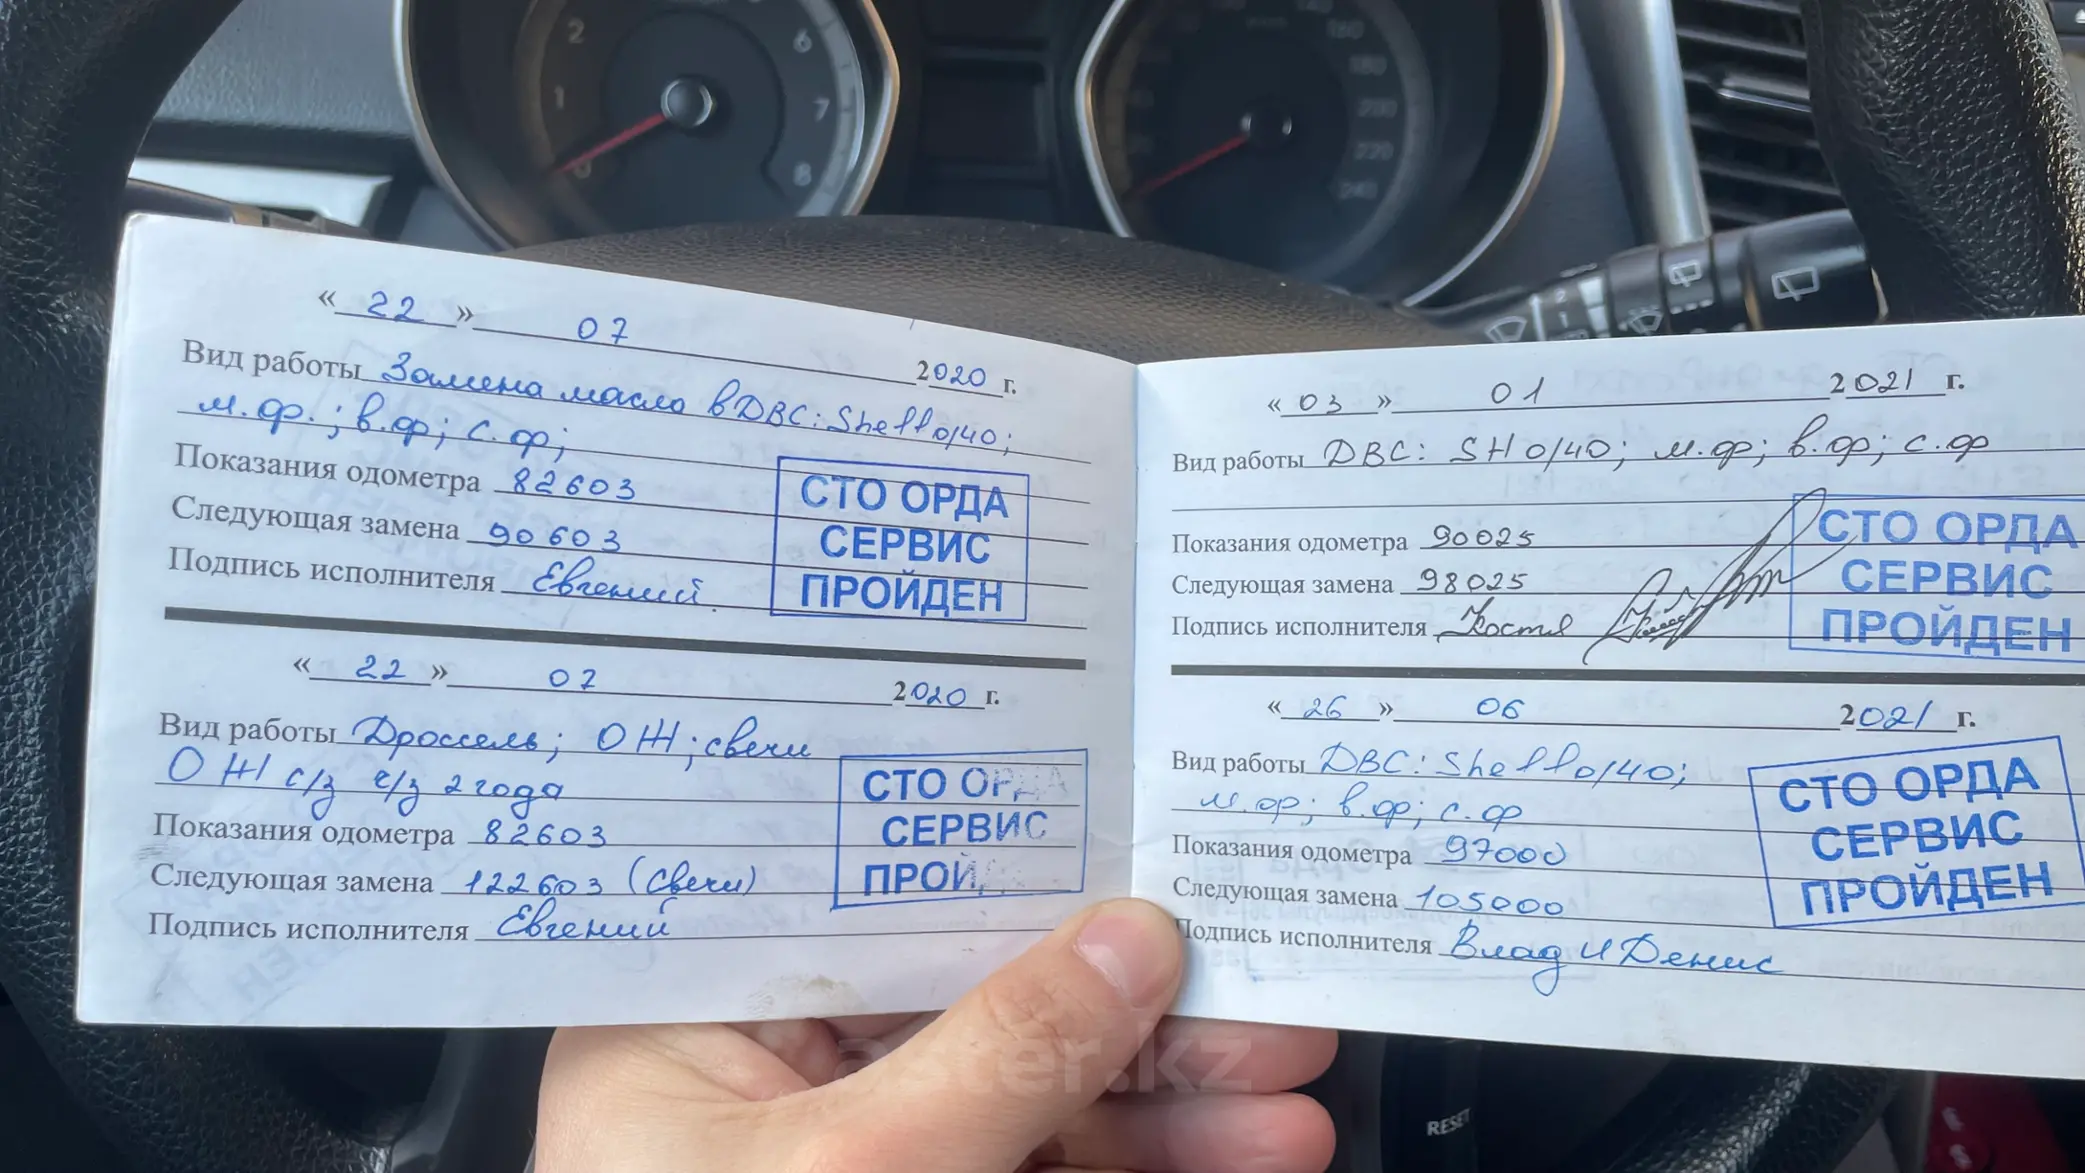 2
1
0
6
7
8
160
180
200
220
240
« 22 » 07 2020 г.
Вид работы Замена масло в ДВС: Shell 0/40;
м.ф.; в.ф; с.ф;
Показания одометра 82603
Следующая замена 90603
Подпись исполнителя Евгений.
СТО ОРДА
СЕРВИС
ПРОЙДЕН
« 22 » 07 2020 г.
Вид работы Дроссель; ОЖ; свечи
ОЖ с/з ч/з 2 года
Показания одометра 82603
Следующая замена 122603 (свечи)
Подпись исполнителя Евгений
СТО ОРДА
СЕРВИС
ПРОЙ
« 03 » 01 2021 г.
Вид работы ДВС: SH 0/40; м.ф; в.ф; с.ф
Показания одометра 90025
Следующая замена 98025
Подпись исполнителя Костя
СТО ОРДА
СЕРВИС
ПРОЙДЕН
« 26 » 06 2021 г.
Вид работы ДВС: Shell 0/40;
м.ф; в.ф; с.ф
Показания одометра 97000
Следующая замена 105000
Подпись исполнителя Влад и Денис
СТО ОРДА
СЕРВИС
ПРОЙДЕН
aster.kz
RESET